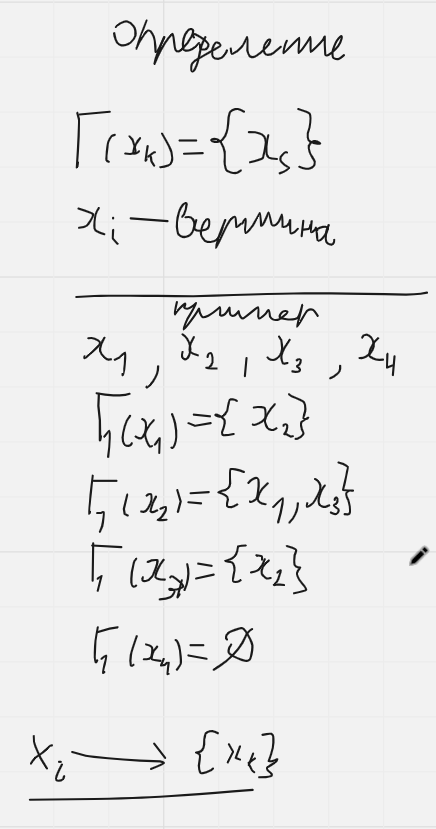 Определение
Γ(x_k) = {x_s}
x_i — вершина
пример
x_1, x_2, x_3, x_4
Γ_1(x_1) = {x_2}
Γ_1(x_2) = {x_1, x_3}
Γ_1(x_3) = {x_2}
Γ_1(x_4) = ∅
x_i → {x_k}